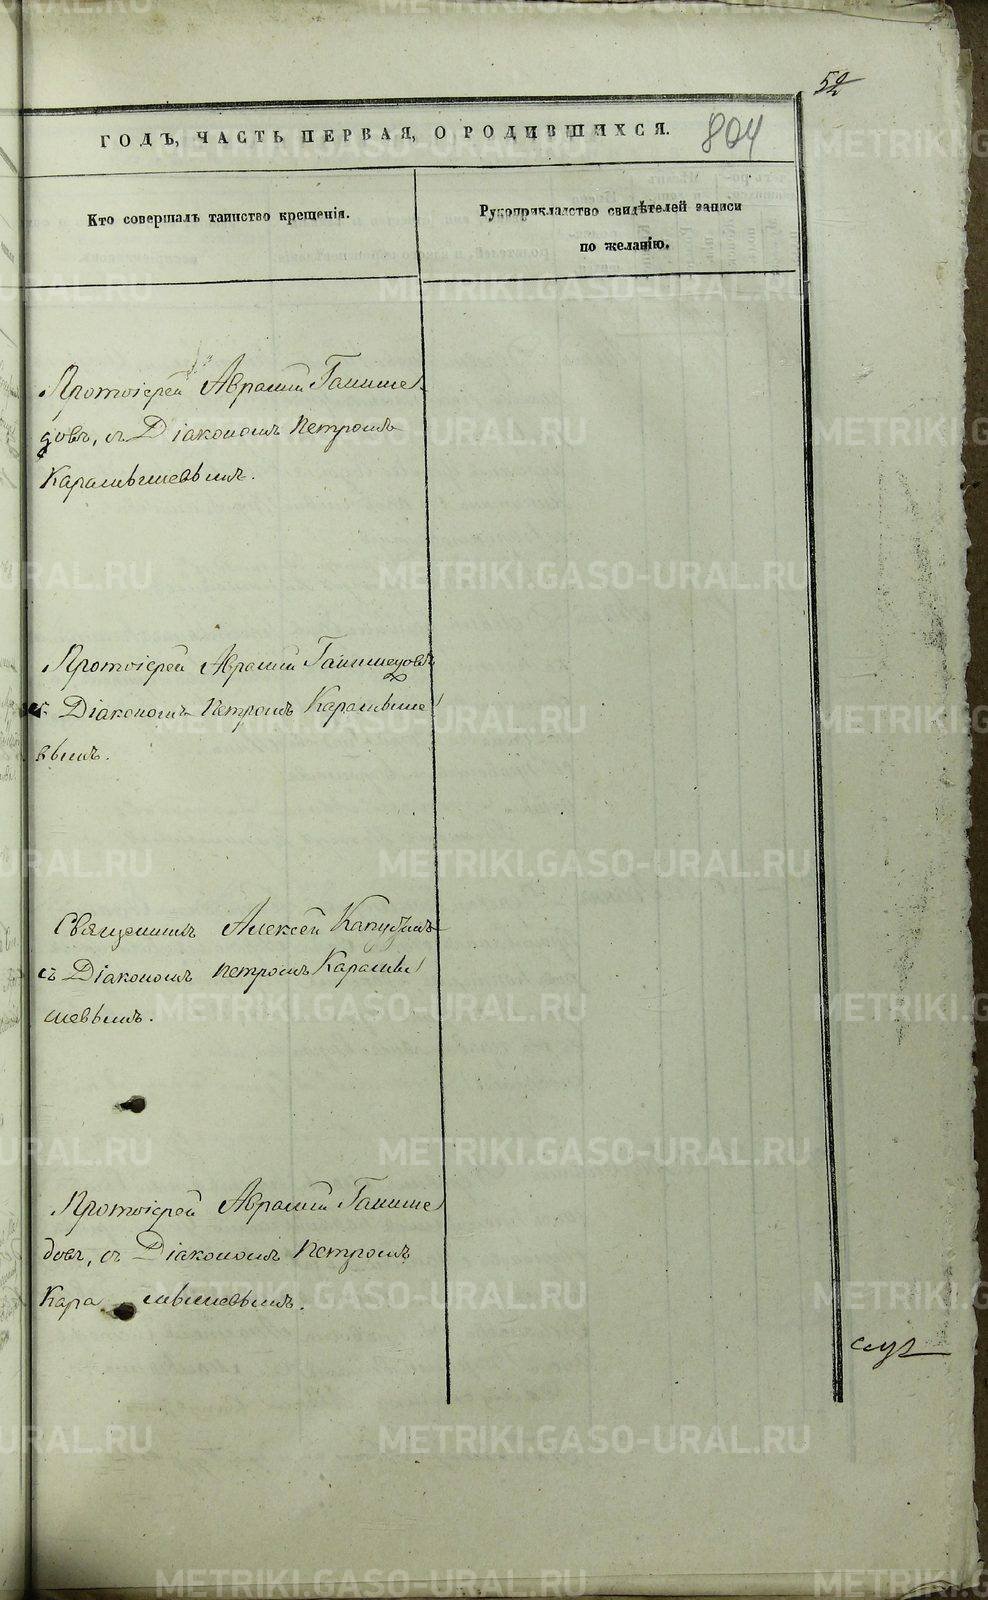 52
ГОДЪ, ЧАСТЬ ПЕРВАЯ, О РОДИВШИХСЯ.
804
Кто совершалъ таинство крещенія.
Рукоприкладство свидѣтелей записи
по желанію.
Протоіерей Аврамій Ганише
довъ, съ Діакономъ Петромъ
Карамышевымъ.
Протоіерей Аврамій Ганишедовъ
съ Діакономъ Петромъ Карамыше
вымъ.
Священникъ Алексей
съ Діакономъ Петромъ Карамы
шевымъ.
Протоіерей Аврамій Ганише
довъ, съ Діакономъ Петромъ
Карамышевымъ.
METRIKI.GASO-URAL.RU